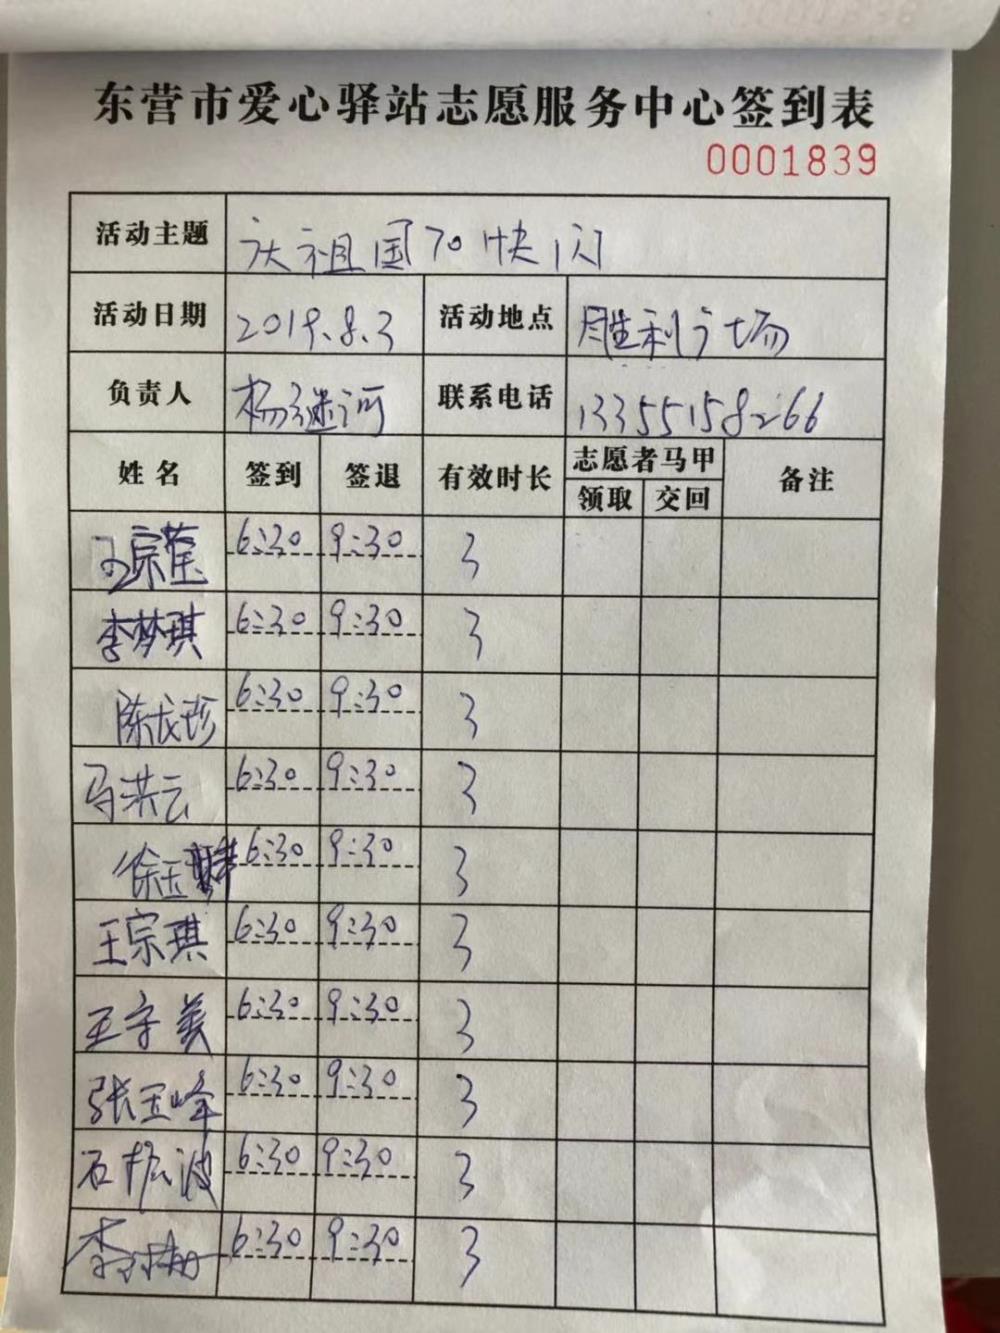 东营市爱心驿站志愿服务中心签到表
0001839
活动主题 庆祖国70快闪
活动日期 2019.8.3 活动地点 胜利广场
负责人 杨继河 联系电话 13355158266
姓名 签到 签退 有效时长 志愿者马甲 备注
领取 交回
王宗莹 6:30 9:30 3
李梦琪 6:30 9:30 3
陈龙珍 6:30 9:30 3
马洪云 6:30 9:30 3
徐玉 6:30 9:30 3
王宗琪 6:30 9:30 3
王守美 6:30 9:30 3
张玉峰 6:30 9:30 3
石振波 6:30 9:30 3
李 6:30 9:30 3